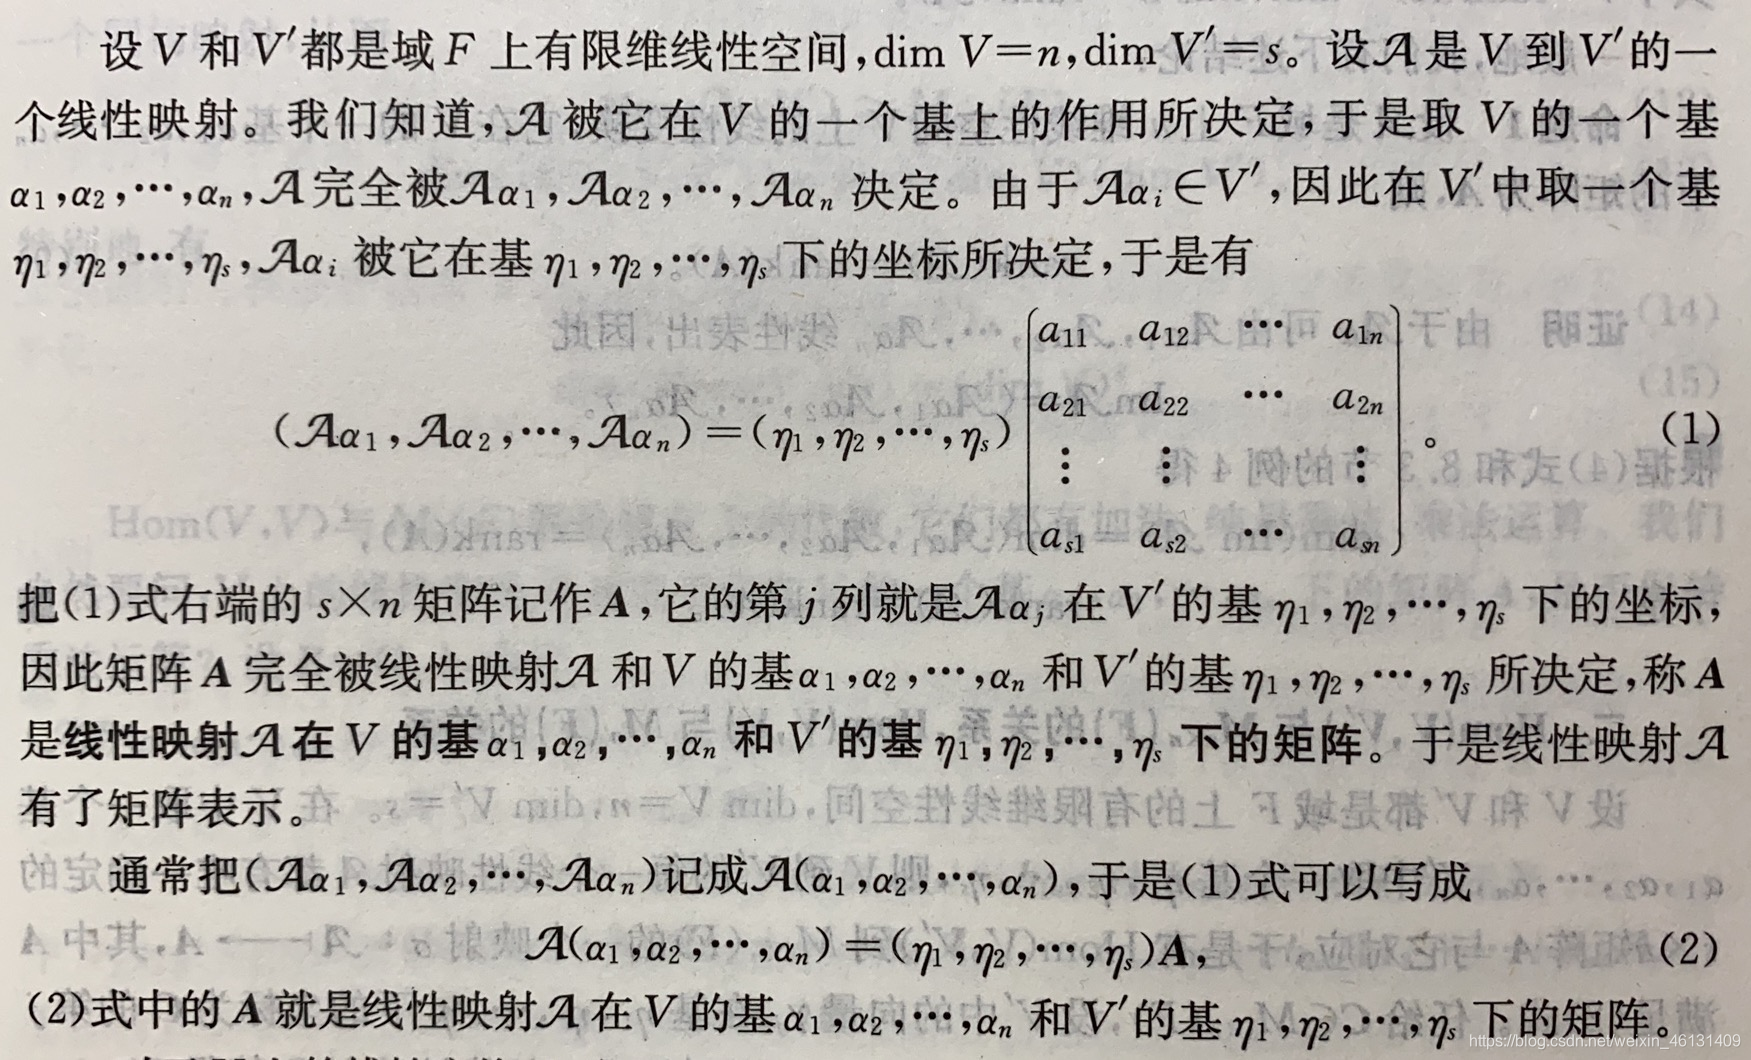 设 V 和 V′都是域 F 上有限维线性空间,dim V=n,dim V′=s。设𝒜是 V 到 V′的一
个线性映射。我们知道,𝒜被它在 V 的一个基上的作用所决定,于是取 V 的一个基
α₁,α₂,⋯,αₙ,𝒜完全被𝒜α₁,𝒜α₂,⋯,𝒜αₙ 决定。由于𝒜αᵢ∈V′,因此在 V′中取一个基
η₁,η₂,⋯,ηₛ,𝒜αᵢ 被它在基 η₁,η₂,⋯,ηₛ 下的坐标所决定,于是有
a₁₁ a₁₂ ⋯ a₁ₙ
a₂₁ a₂₂ ⋯ a₂ₙ
(𝒜α₁,𝒜α₂,⋯,𝒜αₙ)=(η₁,η₂,⋯,ηₛ) 。 (1)
⋮ ⋮ ⋮
aₛ₁ aₛ₂ ⋯ aₛₙ
把(1)式右端的 s×n 矩阵记作 A,它的第 j 列就是𝒜αⱼ 在 V′的基 η₁,η₂,⋯,ηₛ 下的坐标,
因此矩阵 A 完全被线性映射𝒜和 V 的基α₁,α₂,⋯,αₙ 和 V′的基 η₁,η₂,⋯,ηₛ 所决定,称 A
是线性映射𝒜在 V 的基α₁,α₂,⋯,αₙ 和 V′的基 η₁,η₂,⋯,ηₛ 下的矩阵。于是线性映射𝒜
有了矩阵表示。
通常把(𝒜α₁,𝒜α₂,⋯,𝒜αₙ)记成𝒜(α₁,α₂,⋯,αₙ),于是(1)式可以写成
𝒜(α₁,α₂,⋯,αₙ)=(η₁,η₂,⋯,ηₛ)A, (2)
(2)式中的 A 就是线性映射𝒜在 V 的基α₁,α₂,⋯,αₙ 和 V′的基 η₁,η₂,⋯,ηₛ 下的矩阵。
https://blog.csdn.net/weixin_46131409